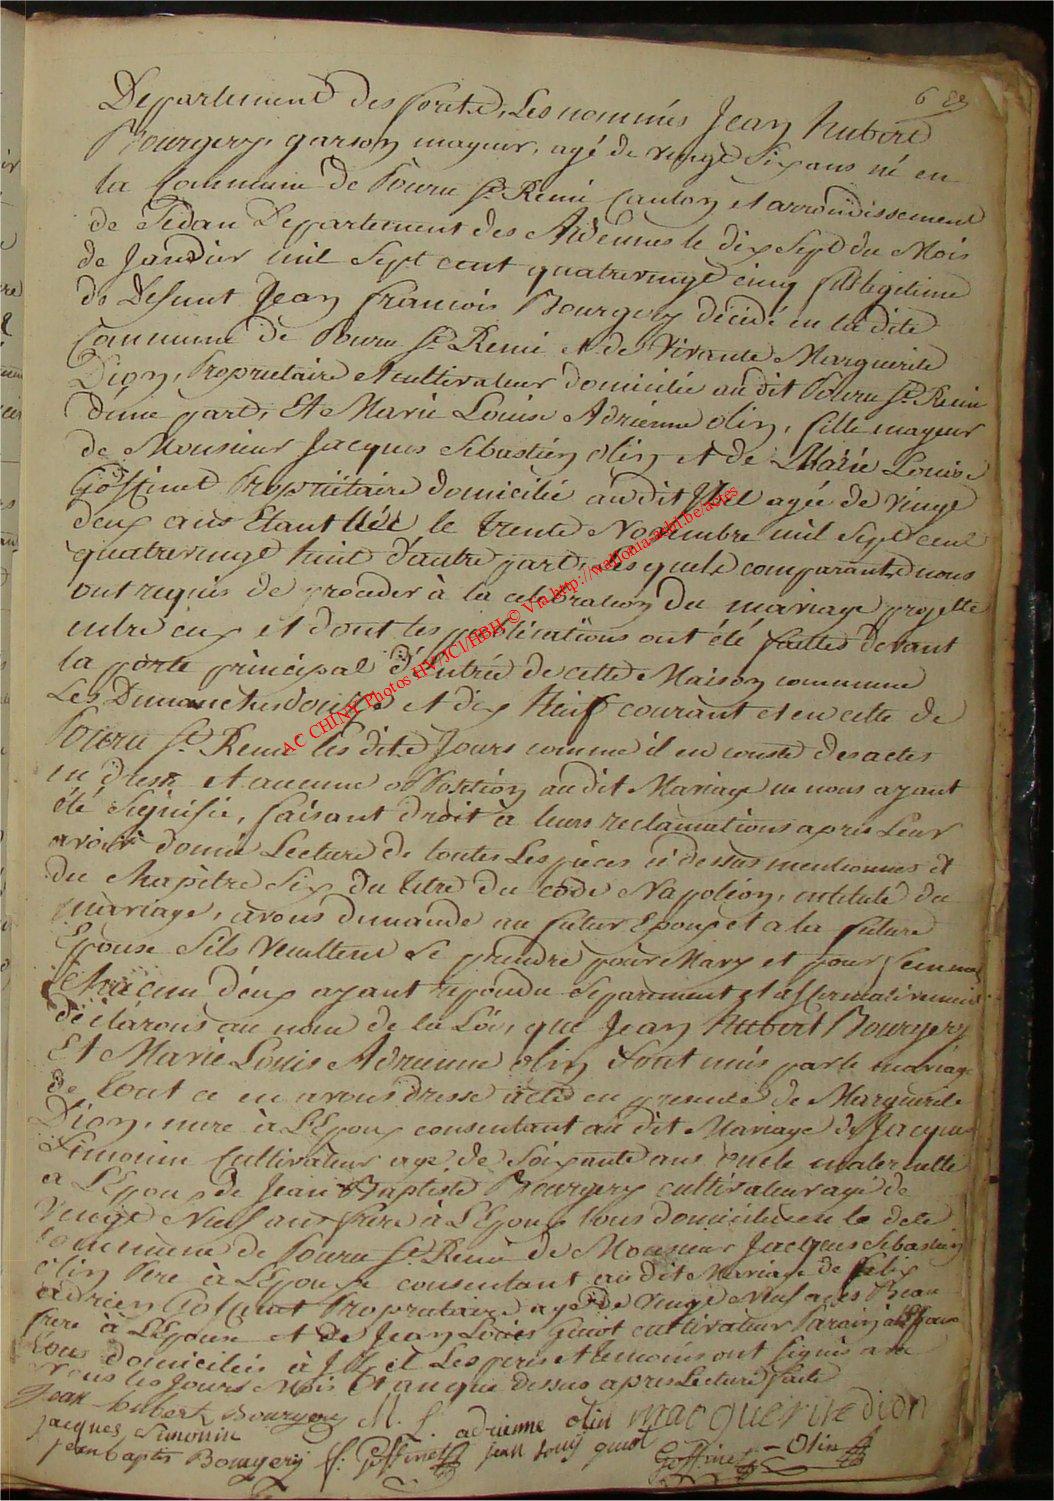 6
Departement des forêts, Les nommés Jean hubert
Bourgery, garson mayeur, agé de vingt Six ans né en
la Commune de Pouru St. Remi Canton et arrondissement
de Sedan Departement des Ardennes le dix Sept du Mois
de Janvier mil Sept cent quatrevingt cinq fils legitime
de Defunt Jean francois Bourgery décidé en la dite
Commune de Pouru St. Remi et de Vivante Marguerite
Dion, Proprietaire et cultivateur domicilié au dit Pouru St. Remi
dune part, Et Marie Louise Adrienne olin, fille mayeur
de Monsieur Jacques Sebastien olin et de Marie Louise
Goffinet Propriitaire domicilié au dit agée de vingt
deux ans Etant née le trente Novembre mil Sept cent
quatrevingt huit d'autre part, lesquels comparants nous
ont requis de proceder à la celebration du mariage projetté
entre eux et dont les publications ont été faittes devant
la porte principal d'Entrée de cette Maison commune
Les Dimanches douze et dix Neuf courant et en celle de
Pouru St. Remi lesdits Jours comme il en conste des actes
en dressé et aucune opposition au dit Mariage ne nous ayant
été Signifié, faisant droit à leurs reclamations apres Leur
avoir donné Lecture de toutes Les pièces cidessus mentionnés et
du Chapître Six du titre du code Napoléon, intitulé du
mariage, avons demandé au futur Epoux et a la future
Epouse Sils veullent Se prendre pour Mary et pour femme
Chacun d'eux ayant repondu Separement et affirmativement
déclarons au nom de la Loi, que Jean hubert Bourgery
Et Marie Louis Adrienne olin Sont unis par le mariage
de tout ce en avons dresse acte en presence de Marguerite
Dion, mere à L'Epoux consentant au dit Mariage de Jacques
Simonin Cultivateur agé de Soixante ans oncle maternelle
a L'Epoux de Jean Baptiste Bourgery cultivateur agé de
Vingt Neuf ans frere à L'Epoux tous domiciliés en la dite
Commune de Pouru St. Remi de Monsieur Jacques Sebastien
olin Pere à L'Epouse consentant au dit Mariage de félix
adrien Goffinet Proprietaire agé de vingt Neuf ans Beau
frere à L'Epouse et de Jean Louis Guiot cultivateur Parain à L'Epouse
tous domiciliés à Les peres et temoins ont Signés avec
Nous les Jours Mois Et an que dessus apres Lecture faite
Jean hubert Bourgery M. L. adrienne olin marguerite dion
jacques Simonin
jean baptis Bourgery f: Goffinet jean louij guiot Goffinet - Olin
AC CHINY Photos HV/JCI/HBH © Via http://wallonia-asbl.be/actes